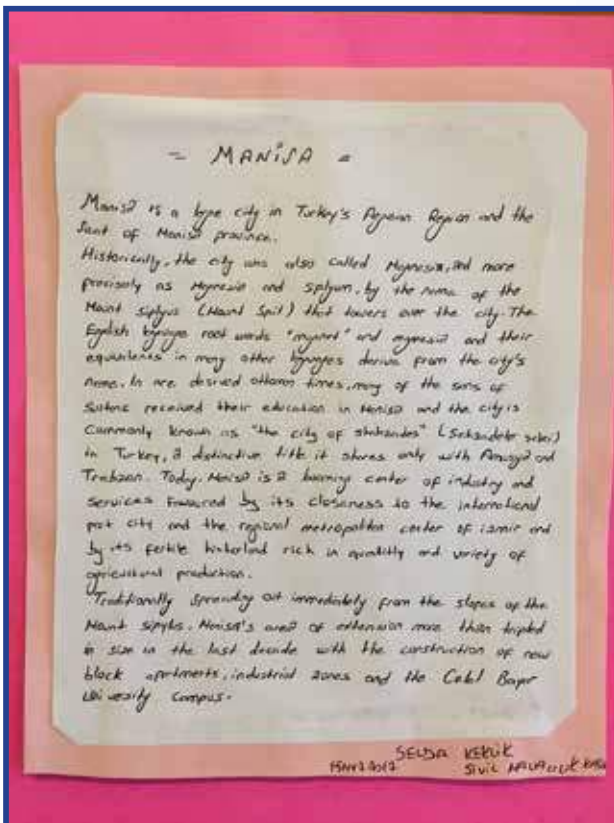 = MANiSA =
Manisa is a large city in Turkey's Agean Region and the
Seat of Manisa province.
Historically, the city was also called Mignesia, and more
precisely as Mignesia and siplyum, by the name of the
Mount siplyus (Mount Spil) that towers over the city. The
English language root words "magnet" and magnesia and their
equivalents in many other languages derive from the city's
name. In are desired ottoman times, many of the sons of
Sultans received their education in Manisa and the city is
Commonly known as "the city of shahzades" (
in Turkey, a distinctive title it shares only with Amasya and
Trabzon. Today, Manisa is a booming center of industry and
services Favoured by its closeness to the international
port city and the regional metropolitan center of izmir and
by its fertile hinterland rich in quantity and variety of
agricultural production.
Traditionally spreading out immediately from the slopes of the
Mount sipylus. Manisa's area of extension more than tripled
in size in the last decade with the construction of new
block apartments, industrial zones and the Celal Bayar
University Campus.
SELDA KEKLiK
SiViL